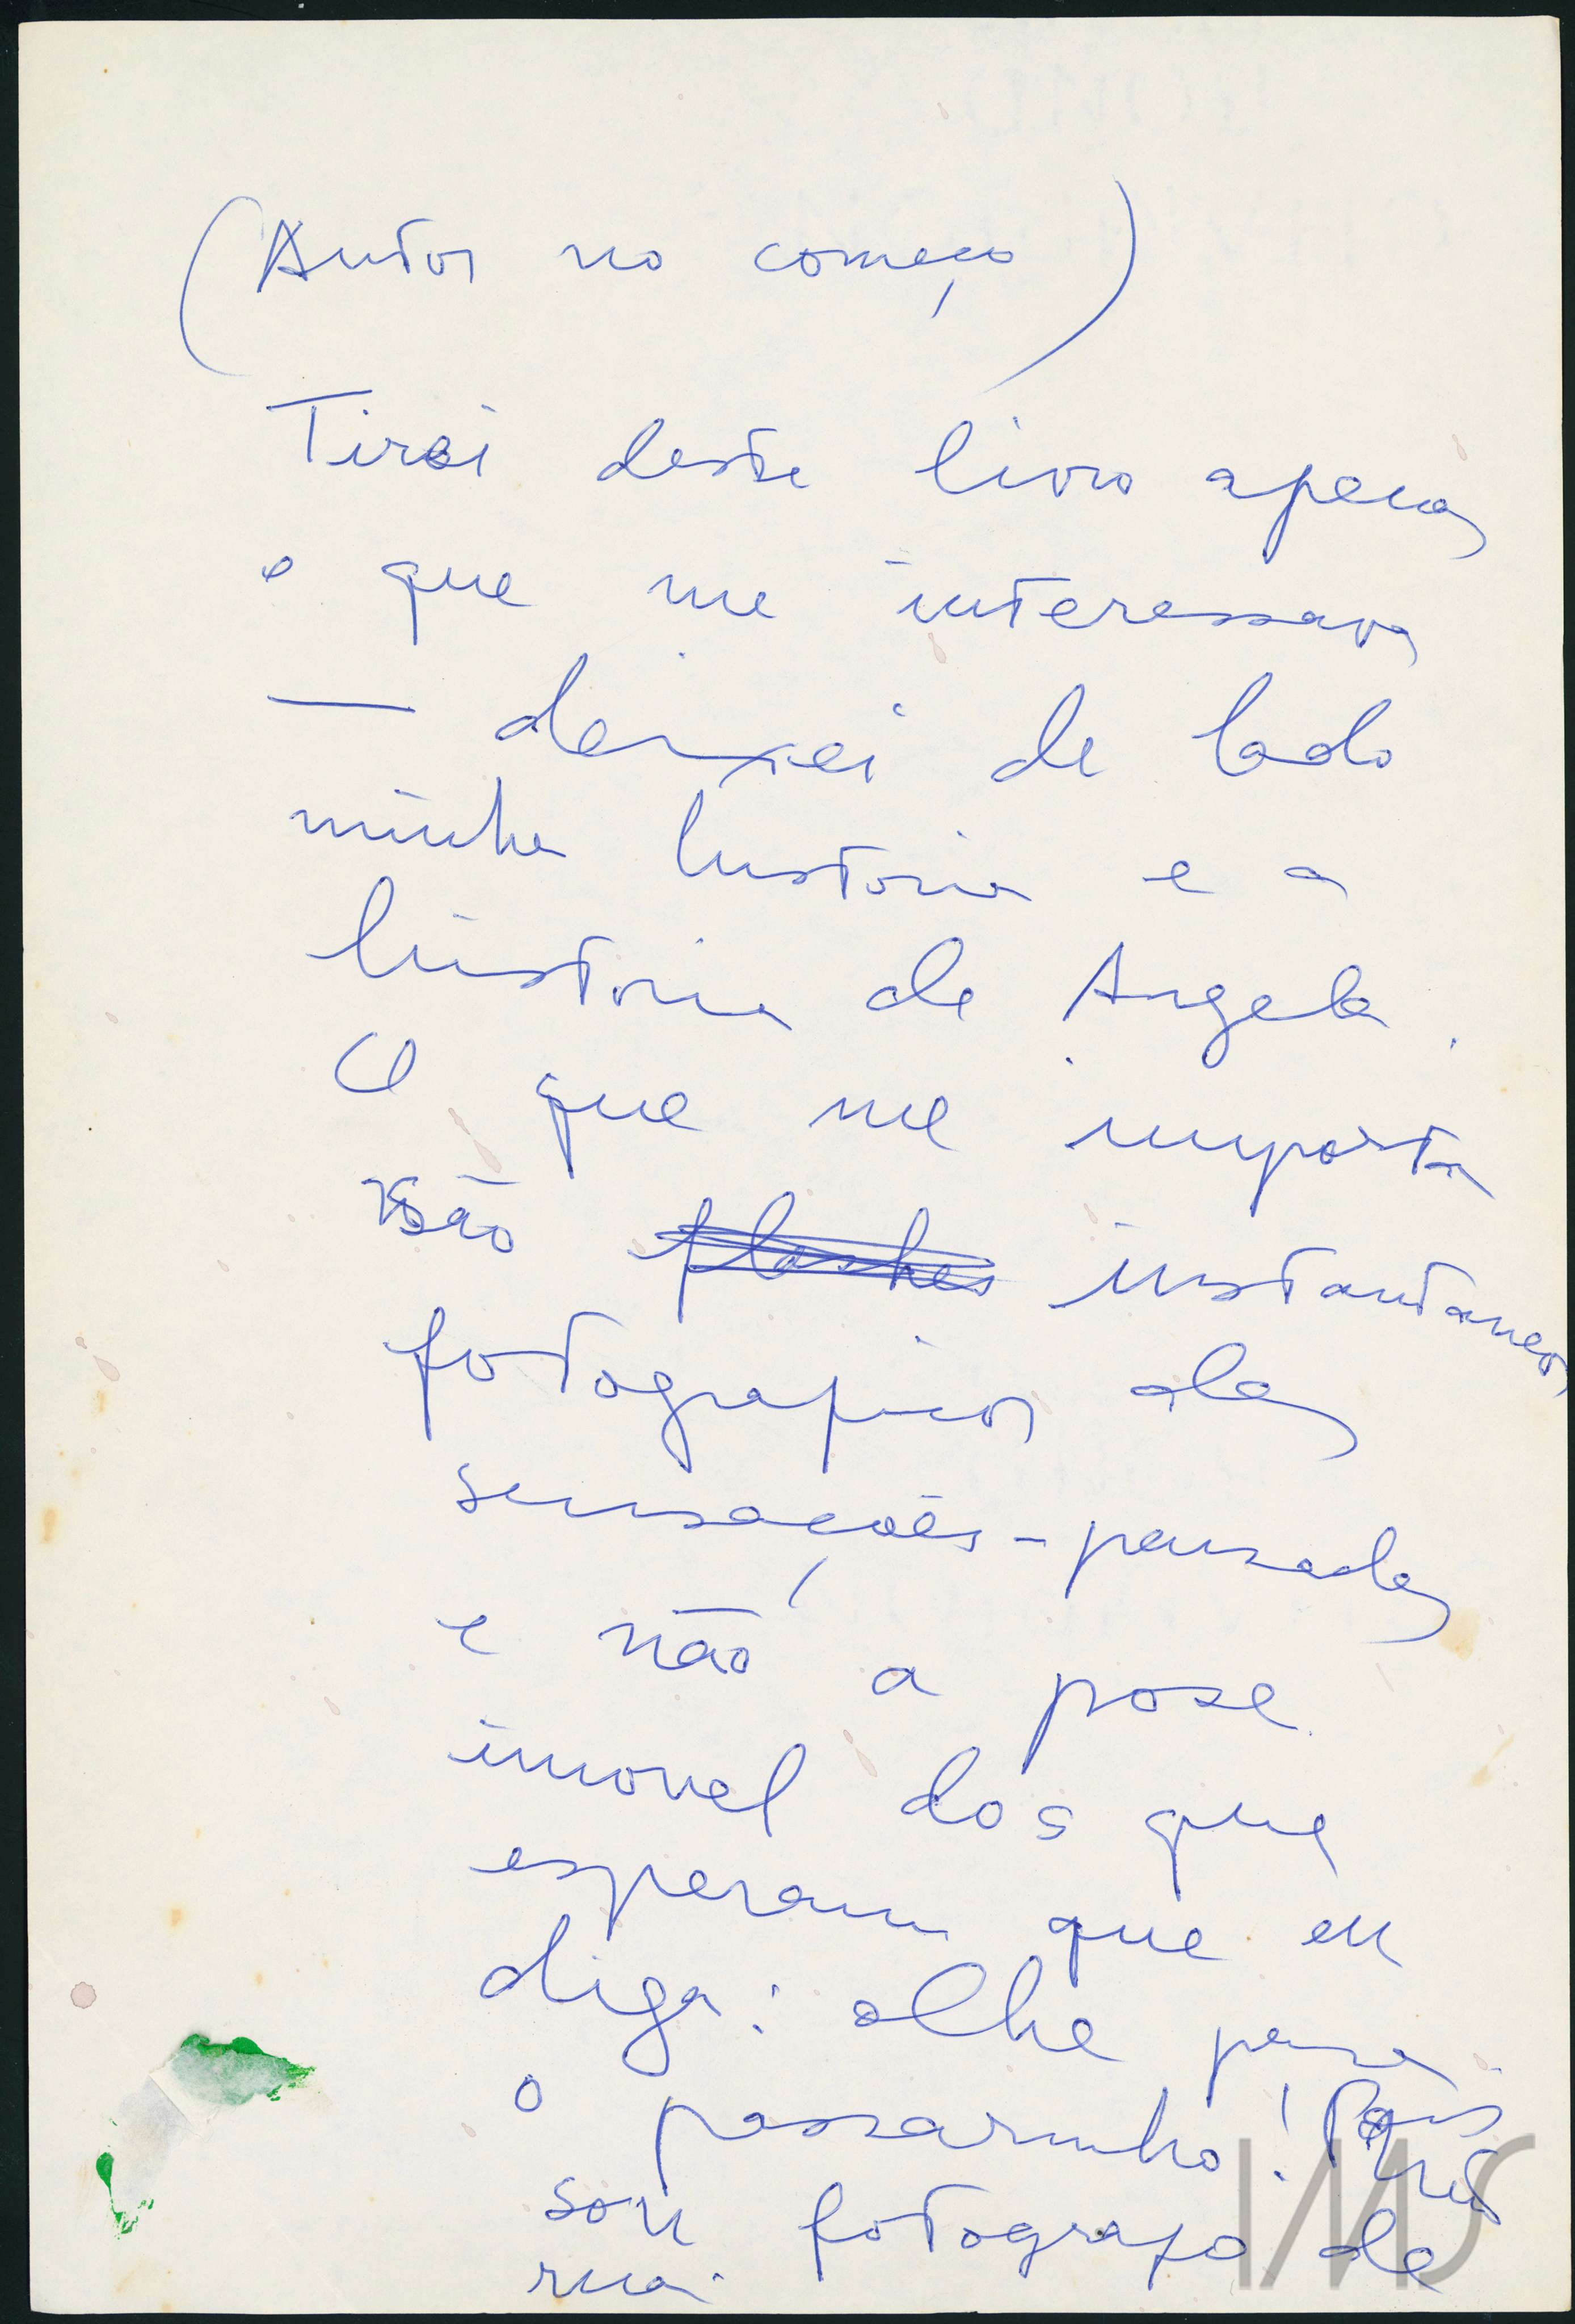 (Autor no começo)
Tirei deste livro apenas
o que me interessava
— deixei de lado
minha historia e a
historia de Angela.
O que me importa
são flashes instantaneos
fotograficos das
sensações-pensadas
e não a pose
imovel dos que
esperam que eu
diga: olhe para
o passarinho! Pois não
sou fotografo de
rua.
IMS